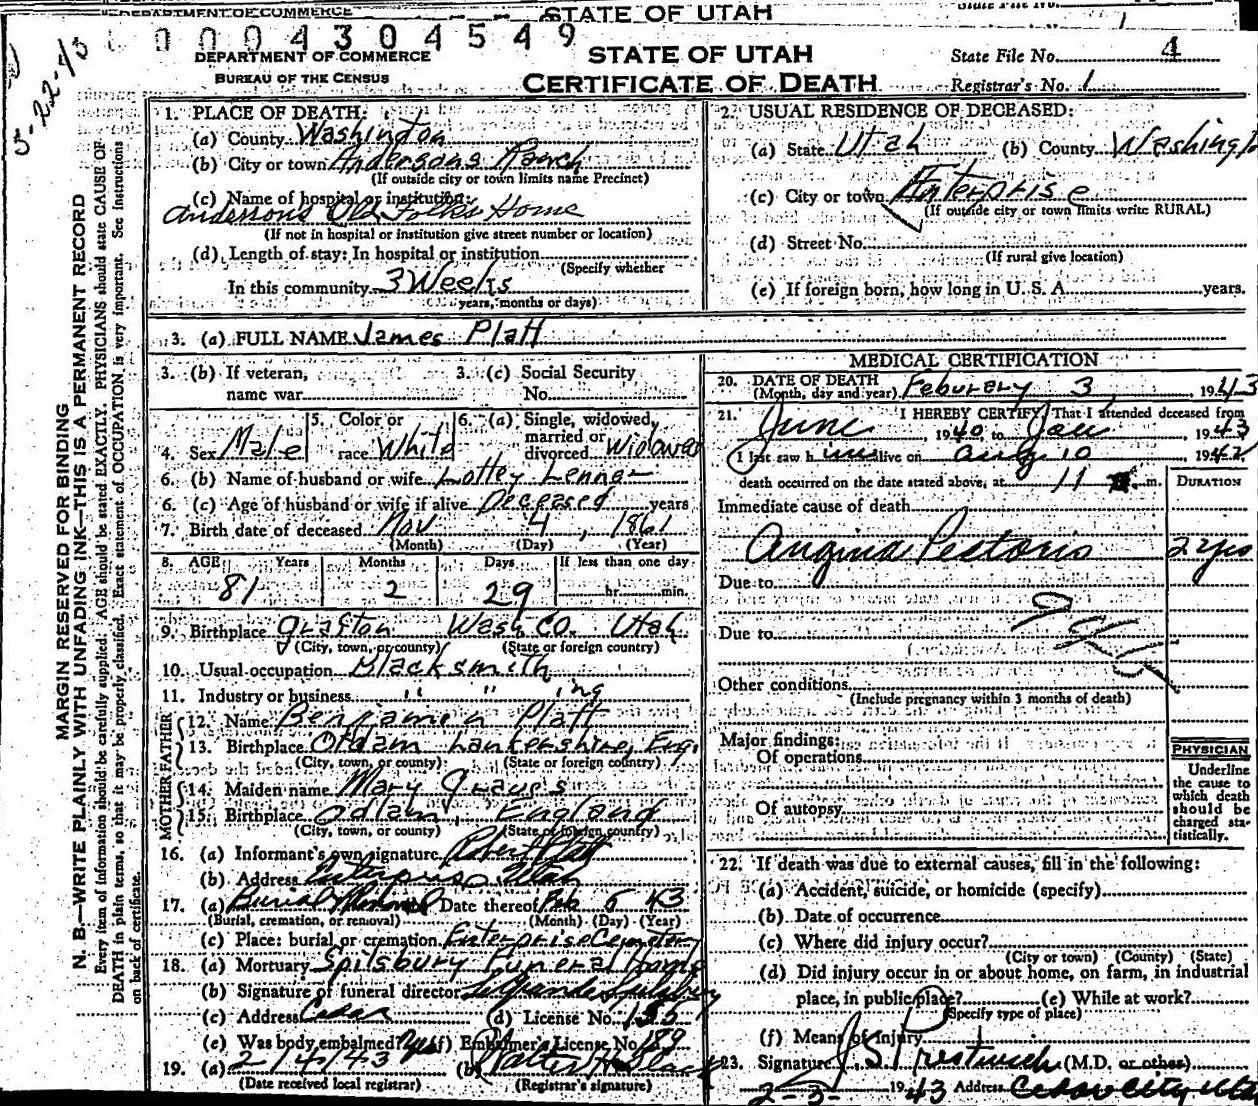 DEPARTMENT OF COMMERCE
STATE OF UTAH
0004304549
3-22-43
DEPARTMENT OF COMMERCE
BUREAU OF THE CENSUS
STATE OF UTAH
CERTIFICATE OF DEATH
State File No. 4
Registrar's No. 1
MARGIN RESERVED FOR BINDING
N. B.—WRITE PLAINLY WITH UNFADING INK—THIS IS A PERMANENT RECORD
Every item of information should be carefully supplied. AGE should be stated EXACTLY. PHYSICIANS should state CAUSE OF
DEATH in plain terms, so that it may be properly classified. Exact statement of OCCUPATION is very important. See instructions
on back of certificate.
1. PLACE OF DEATH:
(a) County Washington
(b) City or town Andersons Ranch
(If outside city or town limits name Precinct)
(c) Name of hospital or institution:
Andersons Old Folks Home
(If not in hospital or institution give street number or location)
(d) Length of stay: In hospital or institution
(Specify whether
In this community 3 Weeks
years, months or days)
2. USUAL RESIDENCE OF DECEASED:
(a) State Utah (b) County Washington
(c) City or town Enterprise
(If outside city or town limits write RURAL)
(d) Street No.
(If rural give location)
(e) If foreign born, how long in U. S. A. years.
3. (a) FULL NAME James Platt
3. (b) If veteran,
name war
3. (c) Social Security
No.
4. Sex Male
5. Color or
race White
6. (a) Single, widowed,
married or
divorced Widowed
6. (b) Name of husband or wife Lottey Lennor
6. (c) Age of husband or wife if alive Deceased years
7. Birth date of deceased Nov 4, 1861
(Month) (Day) (Year)
8. AGE Years Months Days If less than one day
81 2 29 hr. min.
9. Birthplace Grafton Wash Co. Utah
(City, town, or county) (State or foreign country)
10. Usual occupation Blacksmith
11. Industry or business " " ing
FATHER
12. Name Benjamen Platt
13. Birthplace Oldam Lankershire, Eng.
(City, town, or county) (State or foreign country)
MOTHER
14. Maiden name Mary Graves
15. Birthplace Oldam, England
(City, town, or county) (State or foreign country)
16. (a) Informant's own signature Robert Platt
(b) Address Enterprise Utah
17. (a) Burial Removal Date thereof Feb 5 43
(Burial, cremation, or removal) (Month) (Day) (Year)
(c) Place: burial or cremation Enterprise Cemetery
18. (a) Mortuary Spilsbury Funeral Home
(b) Signature of funeral director LeGrande Spilsbury
(c) Address Cedar (d) License No. 155
(e) Was body embalmed? Yes (f) Embalmer's License No. 189
19. (a) 2/4/43 (b) Walter H.
(Date received local registrar) (Registrar's signature)
MEDICAL CERTIFICATION
20. DATE OF DEATH
(Month, day and year) Feburary 3, 1943
21. I HEREBY CERTIFY, That I attended deceased from
June, 1940 to Jan 1943
I last saw him alive on 10 1942
death occurred on the date stated above, at 11 m.
DURATION
Immediate cause of death
Angina Pectoris 2 yrs
Due to
Due to
Other conditions
(Include pregnancy within 3 months of death)
Major findings:
Of operations
Of autopsy
PHYSICIAN
Underline
the cause to
which death
should be
charged sta-
tistically.
22. If death was due to external causes, fill in the following:
(a) Accident, suicide, or homicide (specify)
(b) Date of occurrence
(c) Where did injury occur?
(City or town) (County) (State)
(d) Did injury occur in or about home, on farm, in industrial
place, in public place? (e) While at work?
(Specify type of place)
(f) Means of injury
23. Signature J. S. Prestwich (M.D. or other)
2-3- 1943 Address Cedar City Utah